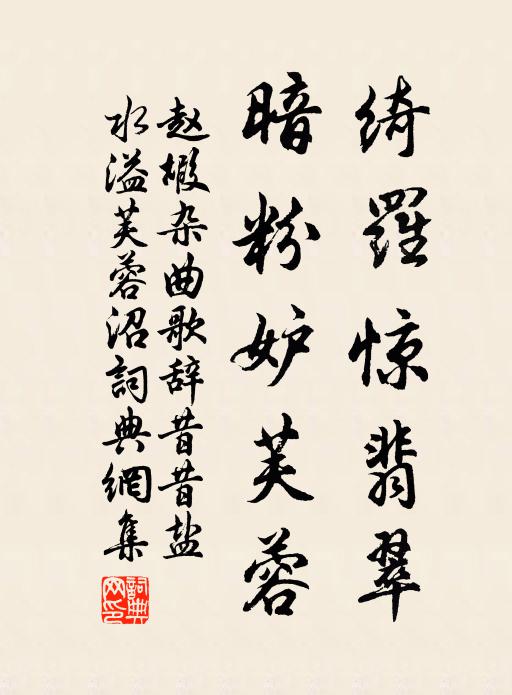 绮羅惊翡翠
暗粉妒芙蓉
赵椵杂曲歌辞昔昔盐
水溢芙蓉沼詞典網集
詞典网印